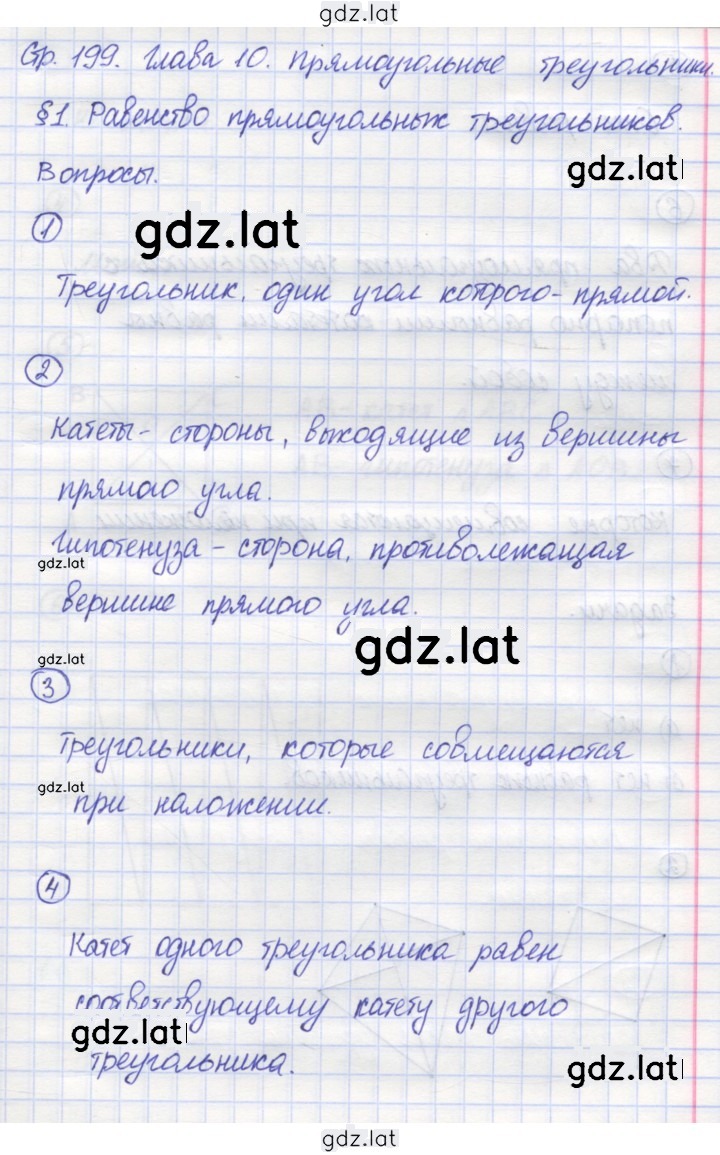 gdz.lat
Стр. 199. Глава 10. Прямоугольные треугольники.
§1 Равенство прямоугольных треугольников.
Вопросы.
gdz.lat
1
gdz.lat
Треугольник, один угол которого - прямой.
2
Катеты - стороны, выходящие из вершины
прямого угла.
Гипотенуза - сторона, противолежащая
gdz.lat
вершине прямого угла.
gdz.lat
gdz.lat
3
Треугольники, которые совмещаются
gdz.lat
при наложении.
4
Катет одного треугольника равен
соответствующему катету другого
gdz.lat
треугольника.
gdz.lat
gdz.lat